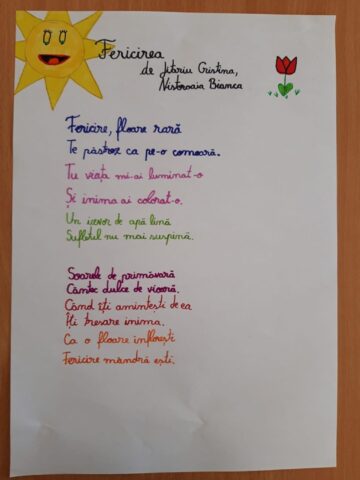 Fericirea
de Jitariu Cristina,
Nistoroaia Bianca
Fericire, floare rară
Te păstrez ca pe-o comoară.
Tu viața mi-ai luminat-o
Și inima ai colorat-o.
Un izvor de apă lină
Sufletul nu mai suspină.
Soarele de primăvară
Cântec dulce de vioară.
Când îți amintești de ea
Îți tresare inima.
Ca o floare înflorești
Fericire mândră ești.